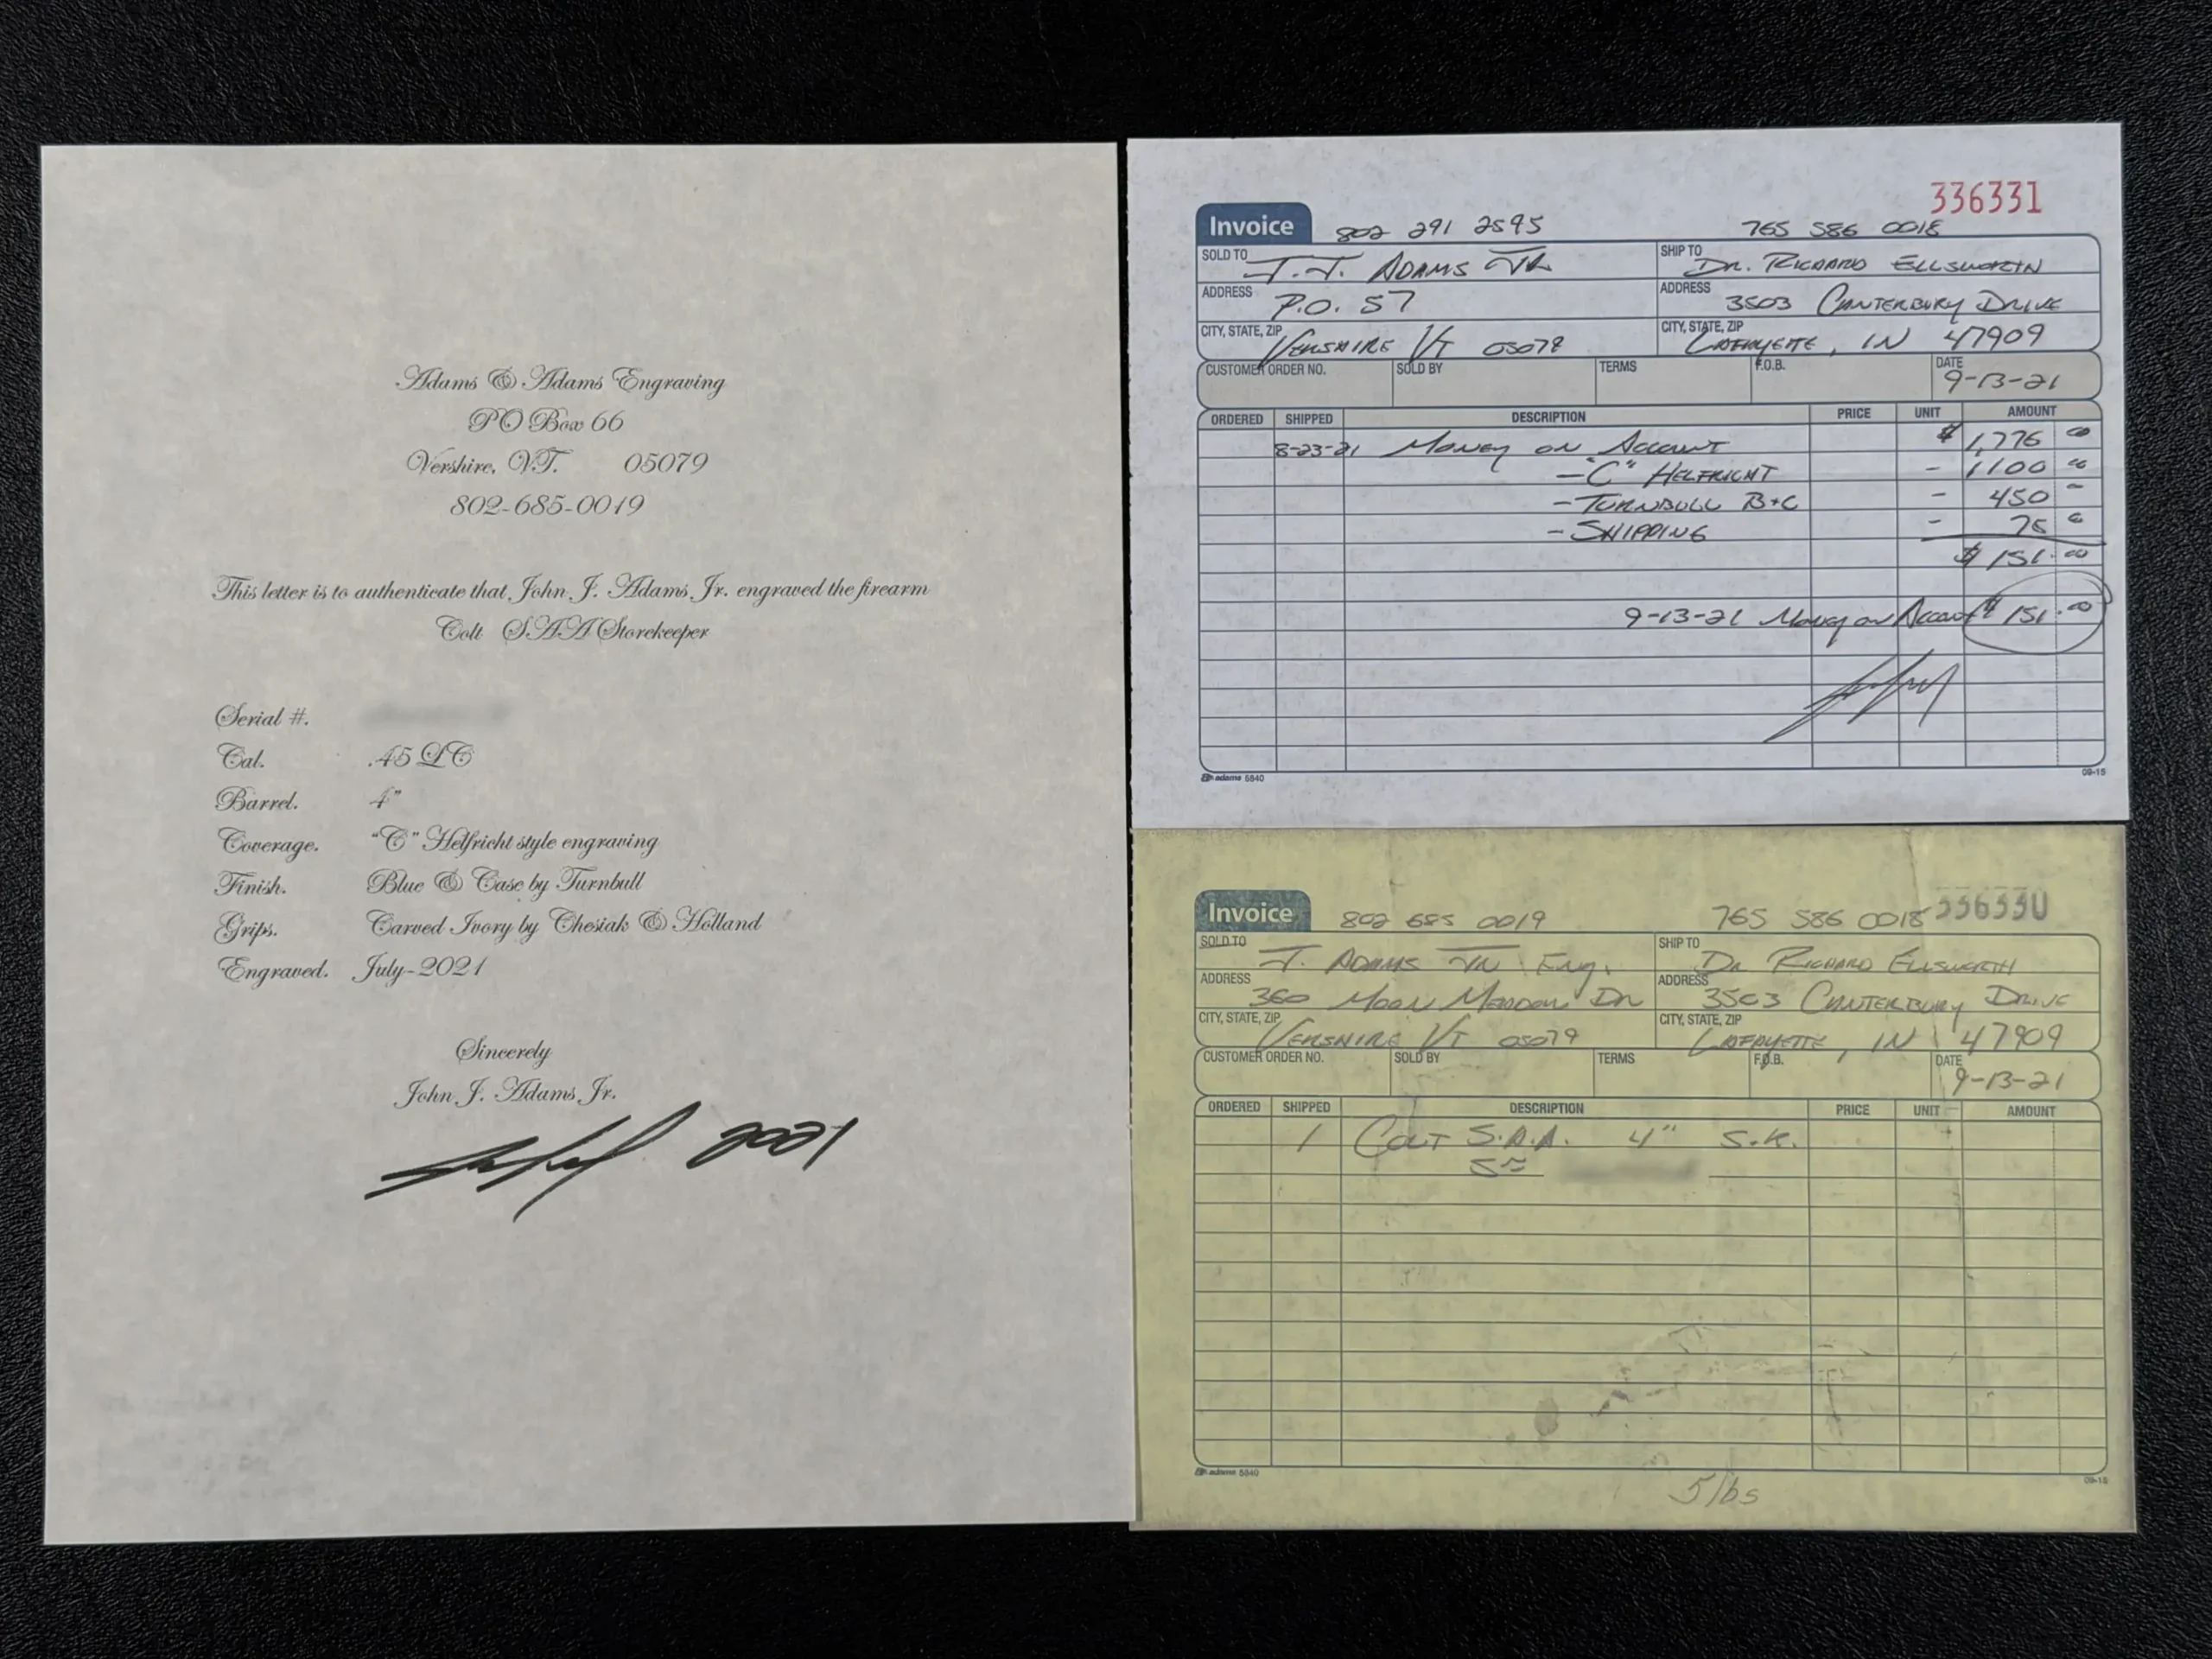 Adams & Adams Engraving
PO Box 66
Vershire, VT. 05079
802-685-0019
This letter is to authenticate that John J. Adams, Jr. engraved the firearm
Colt SAA Storekeeper
Serial #.
Cal. .45 LC
Barrel. 4"
Coverage. "C" Helfricht style engraving
Finish. Blue & Case by Turnbull
Grips. Carved Ivory by Chesiak & Holland
Engraved. July-2021
Sincerely
John J. Adams, Jr.
2021
336331
Invoice 802 291 2595 765 586 0018
SOLD TO J.J. ADAMS JR SHIP TO DR. RICHARD ELLSWORTH
ADDRESS P.O. 57 ADDRESS 3503 CANTERBURY DRIVE
CITY, STATE, ZIP VERSHIRE VT 05079 CITY, STATE, ZIP LAFAYETTE, IN 47909
CUSTOMER ORDER NO. SOLD BY TERMS F.O.B. DATE 9-13-21
ORDERED SHIPPED DESCRIPTION PRICE UNIT AMOUNT
8-23-21 MONEY ON ACCOUNT $ 1,776 00
- "C" HELFRICHT - 1100 00
- TURNBULL B+C - 450
- SHIPPING - 75
$ 151.00
9-13-21 Money on Account $ 151.00
adams 5840 09-15
336330
Invoice 802 685 0019 765 586 0018
SOLD TO J. ADAMS JR Eng. SHIP TO DR RICHARD ELLSWORTH
ADDRESS 360 MOON MEADOW DR ADDRESS 3503 CANTERBURY DRIVE
CITY, STATE, ZIP VERSHIRE VT 05079 CITY, STATE, ZIP LAFAYETTE, IN 47909
CUSTOMER ORDER NO. SOLD BY TERMS F.O.B. DATE 9-13-21
ORDERED SHIPPED DESCRIPTION PRICE UNIT AMOUNT
1 COLT S.A.A. 4" S.K.
adams 5840 09-15
5 lbs